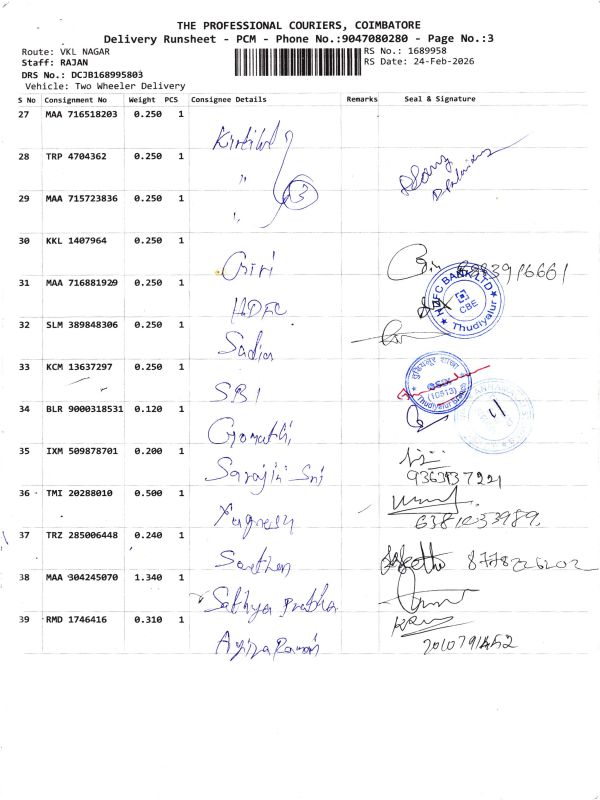 THE PROFESSIONAL COURIERS, COIMBATORE
Delivery Runsheet - PCM - Phone No.:9047080280 - Page No.:3
Route: VKL NAGAR
Staff: RAJAN
DRS No.: DCJB168995803
Vehicle: Two Wheeler Delivery
RS No.: 1689958
RS Date: 24-Feb-2026
S No Consignment No Weight PCS Consignee Details Remarks Seal & Signature
27 MAA 716518203 0.250 1
28 TRP 4704362 0.250 1 "
3
29 MAA 715723836 0.250 1 "
30 KKL 1407964 0.250 1 Giri
31 MAA 716881929 0.250 1 HDFC
HDFC BANK LTD
CBE
Thudiyalur
32 SLM 389848306 0.250 1 Sadia
33 KCM 13637297 0.250 1 SBI
(10513)
34 BLR 9000318531 0.120 1 Gomathi
11
35 IXM 509878701 0.200 1 Sarojini Sri
36 TMI 20288010 0.500 1
37 TRZ 285006448 0.240 1
38 MAA 904245070 1.340 1 Sathya Prabha
39 RMD 1746416 0.310 1